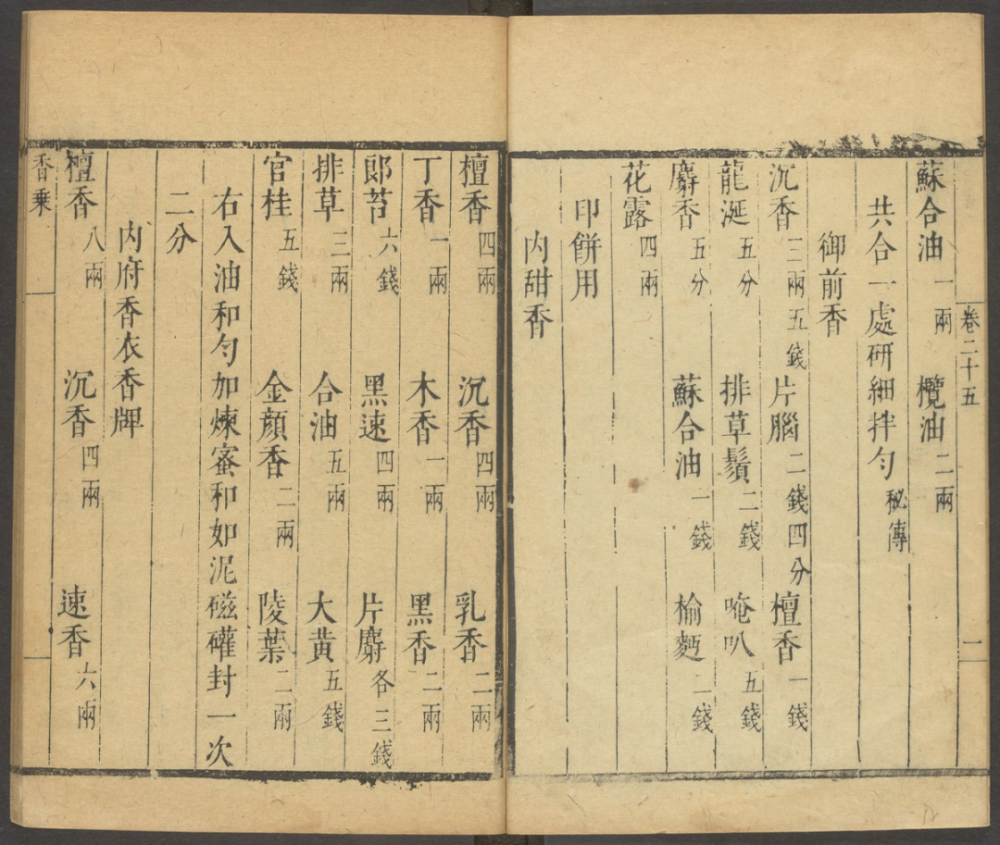 卷二十五
二
蘇合油一兩 欖油二兩
共合一處研細拌勻秘傳
御前香
沉香三兩五錢 片腦二錢四分 檀香一錢
龍涎五分 排草鬚二錢 唵叭五錢
麝香五分 蘇合油一錢 榆麪一錢
花露四兩
印餅用
內甜香
檀香四兩 沉香四兩 乳香二兩
丁香一兩 木香一兩 黑香二兩
郎苔六錢 黑速四兩 片麝各三錢
排草三兩 合油五兩 大黃五錢
官桂五錢 金顏香二兩 陵葉二兩
右入油和勻加煉蜜和如泥磁罐封一次
二分
內府香衣香牌
檀香八兩 沉香四兩 速香六兩
香乘